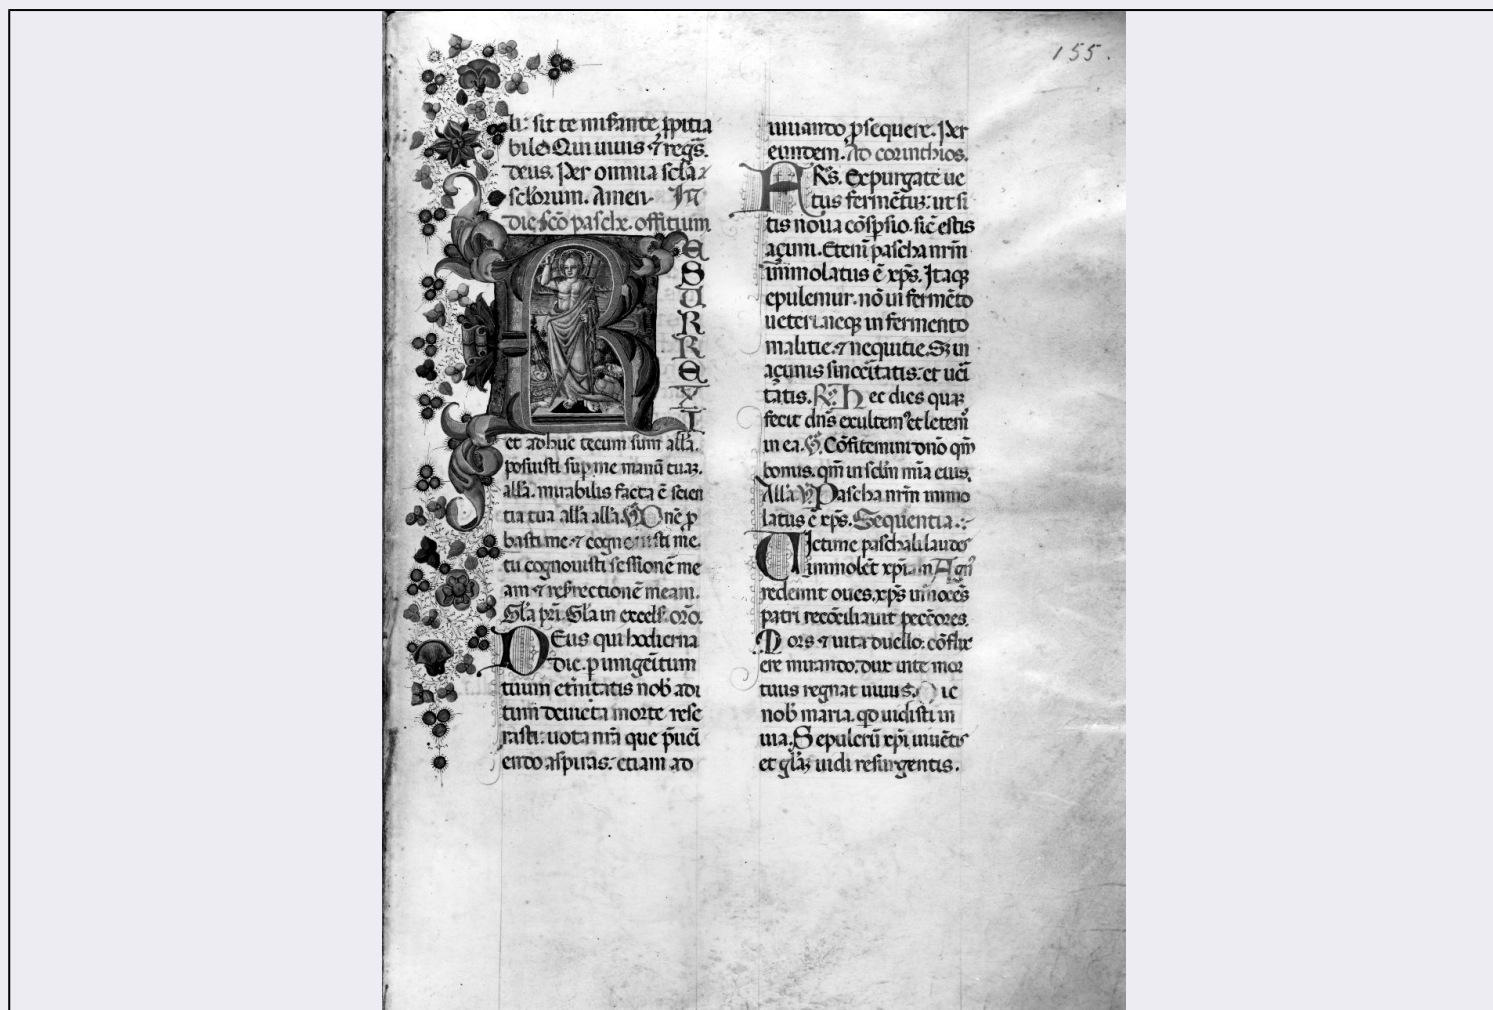 155.
li: sit te miserante ꝓpitia
bile Qui uiuis ⁊ regs̄.
deus. Per omnia scl̄a
scl̄orum. Amen. In
die sc̄o pasche. offitium
RESURREXI
et adhuc tecum sum all̄a.
posuisti suꝑ me manū tuaꝫ.
all̄a. mirabilis facta ē scien
tia tua all̄a all̄a. Dn̄e ꝓ
basti me ⁊ cognouisti me.
tu cognouisti sessionē me
am ⁊ resr̄rectionē meam.
Gl̄a pr̄i. Gl̄a in excels̄. or̄o.
DEus qui hodierna
die. ꝑ unigēitum
tuum et̄nitatis nob̄ adi
tum deuicta morte rese
rasti: uota nr̄a que p̄uei
endo aspiras: etiam ad
iuuando ꝓsequere. Per
eundem. Ad corinthios.
FRS̄. Expurgate ue
tus fermētuꝫ: ut si
tis noua cōsꝑsio. sic̄ estis
açimi. Eteni pascha nr̄m
immolatus ē xp̄s. Itaqꝫ
epulemur. nō in fermēto
ueteri. neqꝫ in fermento
malitie. ⁊ nequitie. Sꝫ in
açimis sinceritatis: et ueri
tatis. R̄ Hec dies quaꝫ
fecit dn̄s exultem᷒ et letem᷒
in ea. V̄. Cōfitemini dn̄o qm̄
bonus. qm̄ in scl̄m mīa eius.
All̄a. V̄ Pascha nr̄m immo
latus ē xp̄s. Sequentia.
Uictime paschali laudes
immolēt xp̄iani Agn᷒
redemit oues. xp̄s innocēs
patri recōciliauit pecc̄ores.
Mors ⁊ uita duello: cōflix
ere mirando: dux uite mor
tuus regnat uiuus. Dic
nob̄ maria. qd uidisti in
uia. Sepulcrū xp̄i uiuētis
et gl̄aꝫ uidi resurgentis.